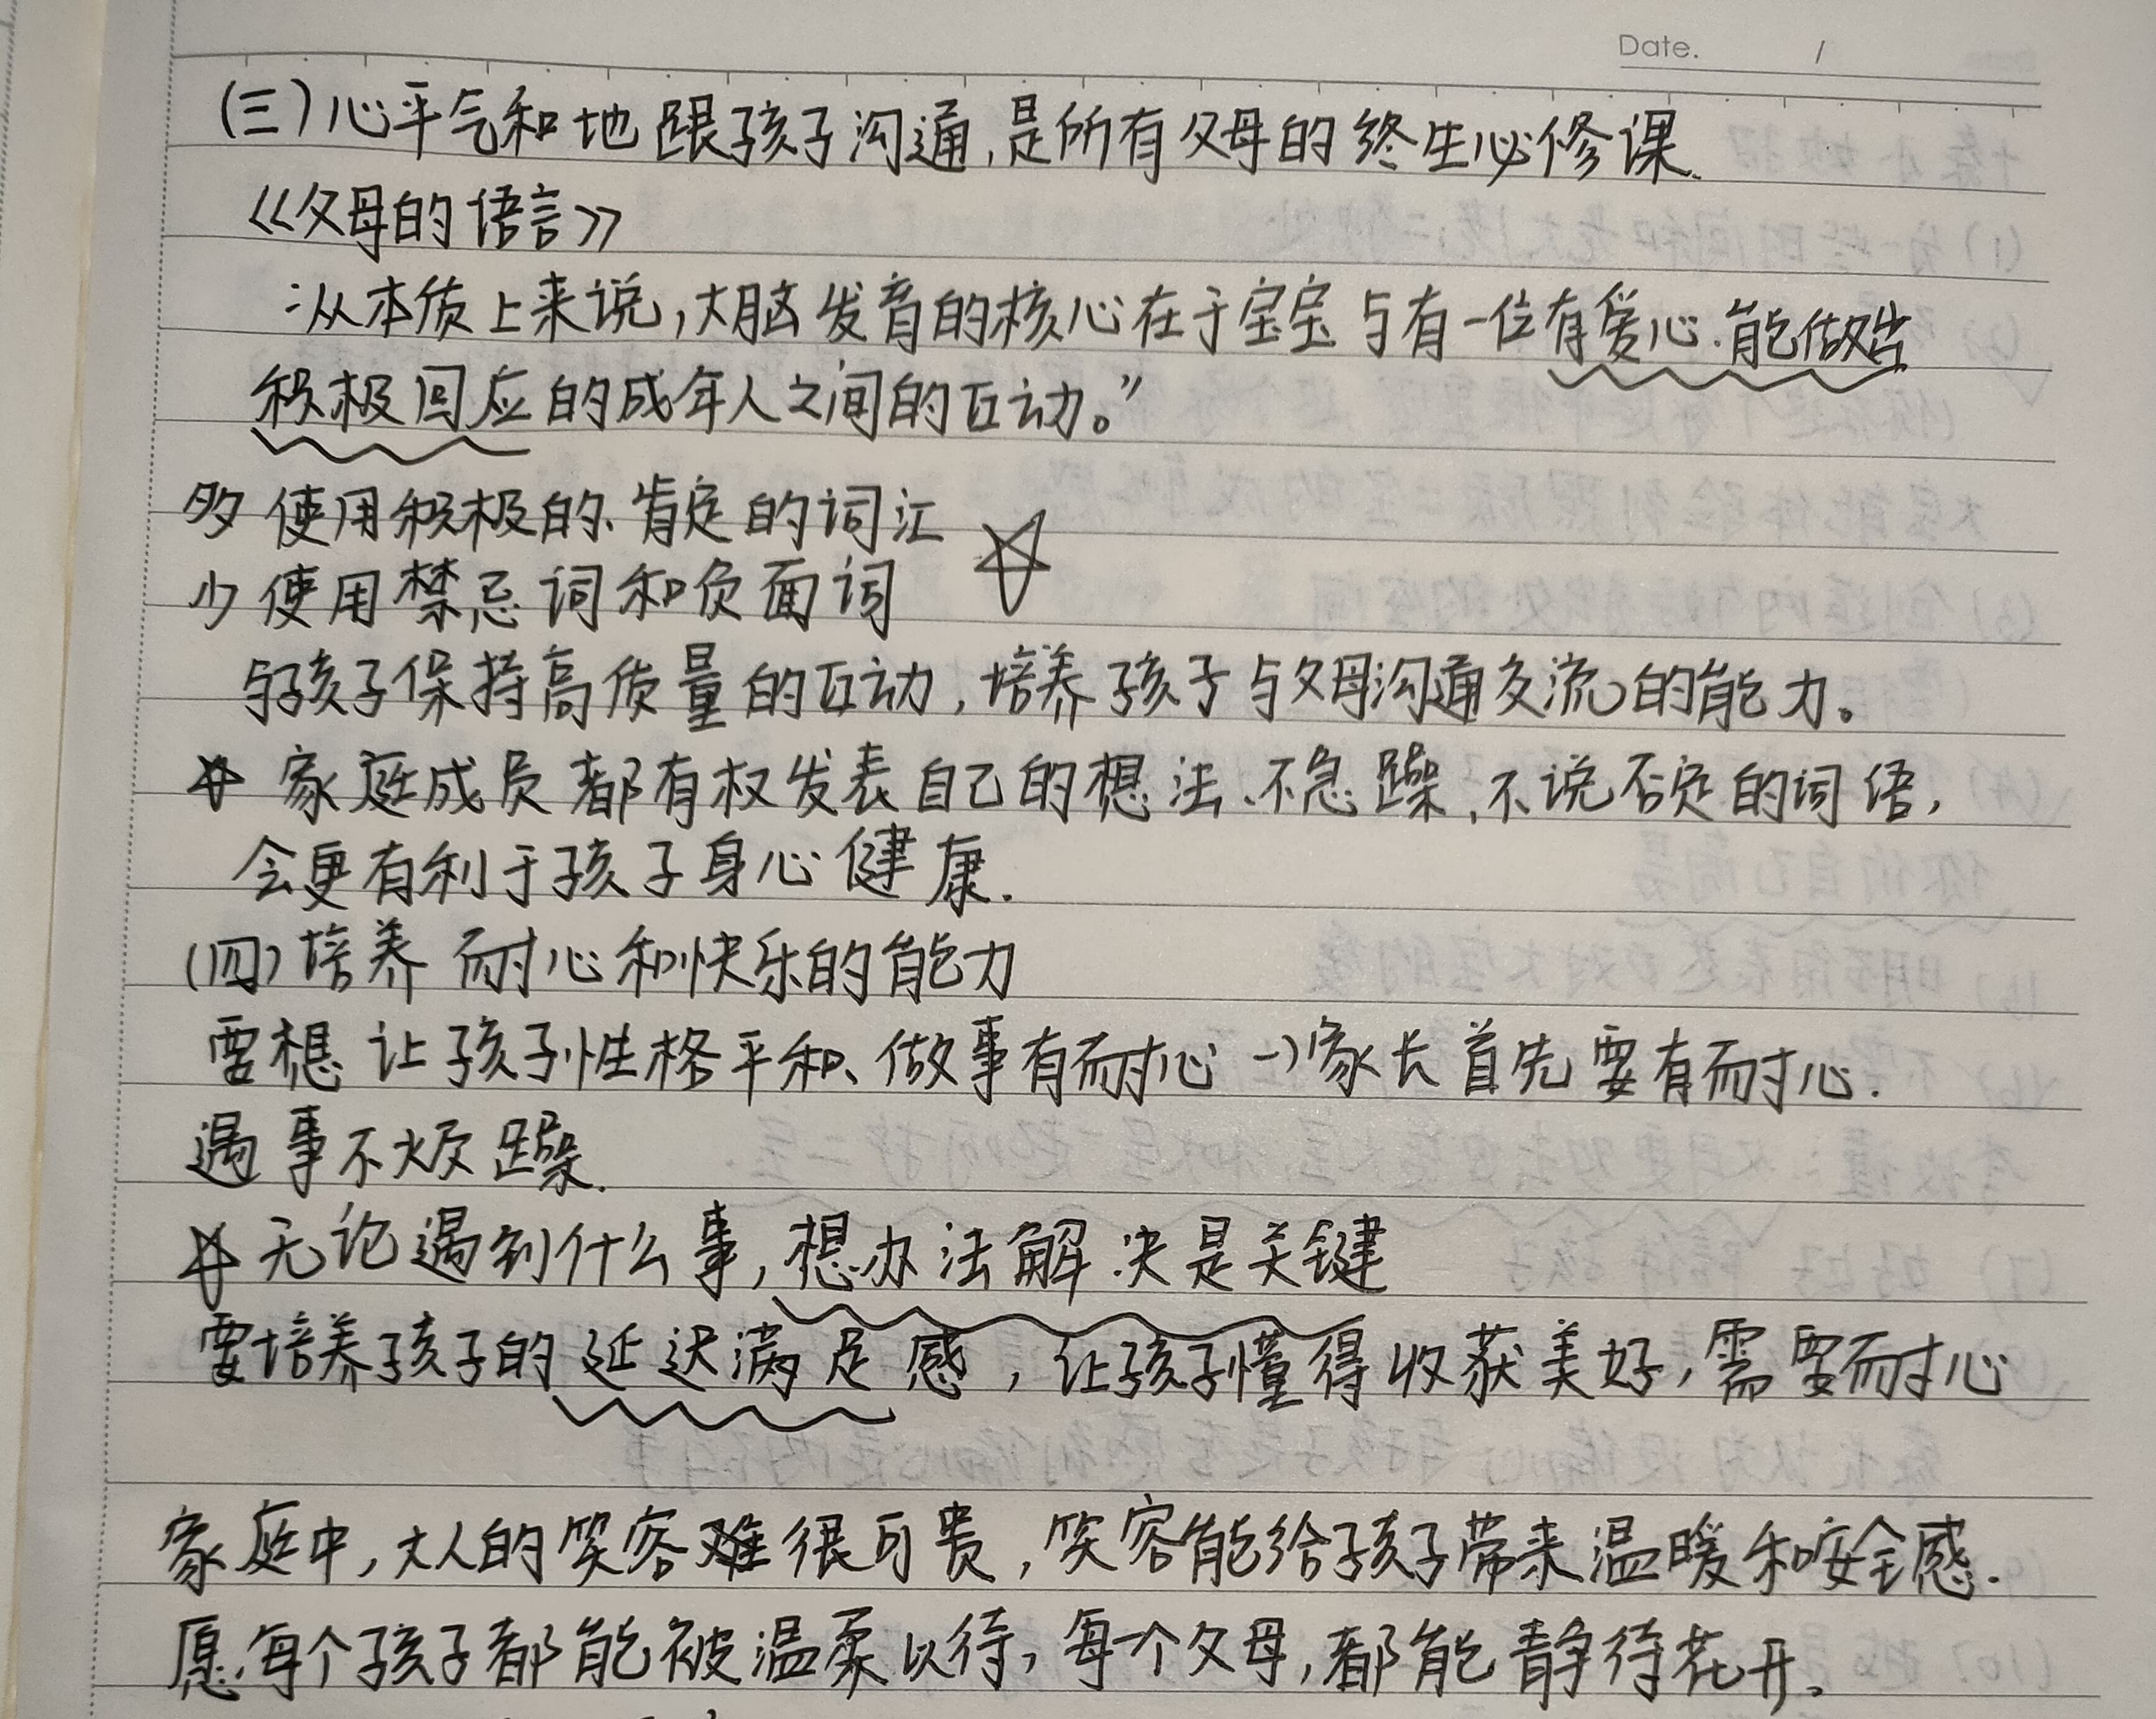 Date. /
(三)心平气和地跟孩子沟通,是所有父母的终生必修课.
《父母的语言》
:从本质上来说,大脑发育的核心在于宝宝与有一位有爱心.能做出
积极回应的成年人之间的互动。”
多使用积极的、肯定的词汇
少使用禁忌词和负面词
与孩子保持高质量的互动,培养孩子与父母沟通交流的能力。
☆家庭成员都有权发表自己的想法、不急躁、不说否定的词语,
会更有利于孩子身心健康.
(四)培养耐心和快乐的能力
要想让孩子性格平和、做事有耐心→家长首先要有耐心.
遇事不烦躁.
☆无论遇到什么事,想办法解决是关键
要培养孩子的延迟满足感,让孩子懂得收获美好,需要耐心
家庭中,大人的笑容难很可贵,笑容能给孩子带来温暖和安全感.
愿每个孩子都能被温柔以待,每一个父母,都能静待花开。